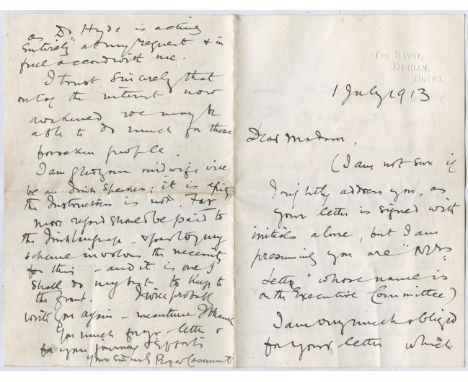 THE SAVOY,
DENHAM,
BUCKS.
1 July 1913
Dear Madam,
(I am not sure if
I rightly address you, as
your letter is signed with
initials alone, but I am
presuming you are
whose name is
on the Executive Committee)
I am very much obliged
for your letter which
as Dr Hyde is acting
entirely at my request & in
full accord with me.
I trust sincerely that
out of the interest now
awakened we may be
able to do much for these
forsaken people.
I am glad your midwife will
be an Irish Speaker: it is a pity
the Instructress is not. Far
more regard should be paid to
the Irish language - & part of my
scheme involves the necessity
for this - and it is one I
shall do my best to keep to
the front. I will probably
write you again - meantime I thank
you much for yr. letter &
for your journey & efforts
Yours sincerely Roger Casement